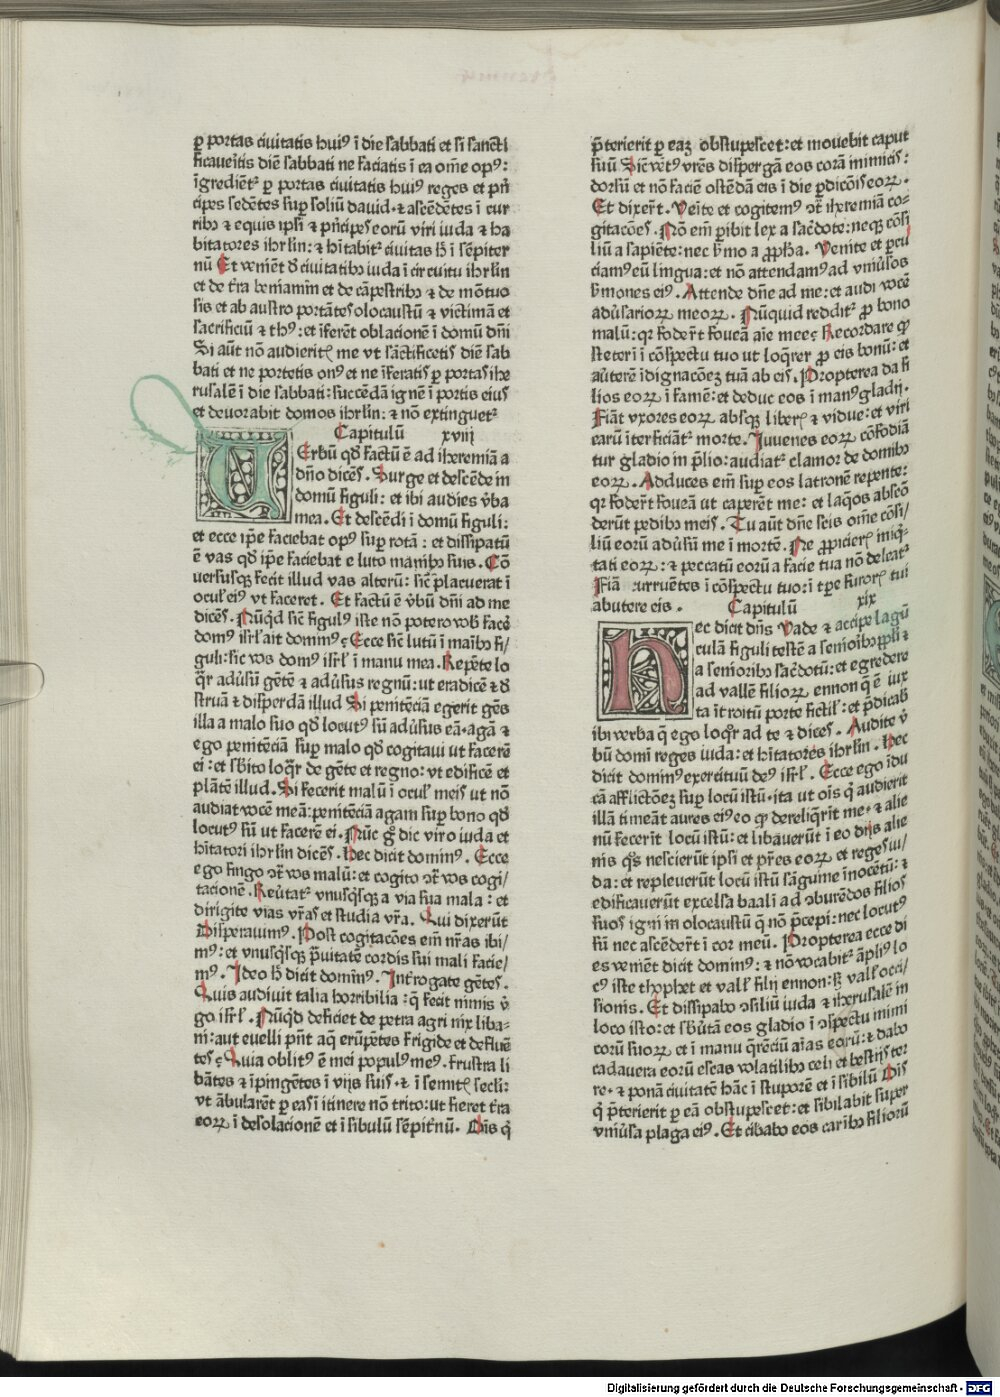 ꝑ portas ciuitatis huiꝰ ī die sabbati et si sancti
ficaueītis diē sabbati ne faciatis ī ea om̄e opꝰ:
īgrediēt᷑ ꝑ portas ciuitatis huiꝰ reges et pñ
cipes sedētes suꝑ soliū dauid ⁊ ascēdētes ī cur
ribꝫ ⁊ equis ipsi ⁊ pñcipes eorū viri iuda ⁊ ha
bitatores ihrl̄m: ⁊ hītabit᷑ ciuitas h̄ ī sēpiter
nū Et veniēt d̄ ciuitatibꝫ iuda ī circuitu ihrl̄m
et de t̄ra beniamin et de cāpestribꝫ ⁊ de mōtuo
sis et ab austro portātes olocaustū ⁊ victimā et
sacrificiū ⁊ thꝰ: et īferēt oblationē ī domū dn̄i
Si aūt nō audierit̄ me vt sāctificetis diē sab
bati et ne portetis onꝰ et ne īferatis ꝑ portas ihe
rusalē ī die sabbati: succēdā ignē ī portis eius
et deuorabit domos ihrl̄m: ⁊ nō extinguet᷑
Capitulū xviij
VErbū qd̄ factū ē ad iheremiā a
dn̄o dicēs. Surge et descēde in
domū figuli: et ibi audies v̄ba
mea. Et descēdi ī domū figuli:
et ecce ip̄e faciebat opꝰ suꝑ rotā: et dissipatū
ē vas qd̄ ip̄e faciebat e luto manibꝫ suis. Cō
uersusqꝫ fecit illud vas alterū: sic̄ placuerat ī
ocul̄ eiꝰ vt faceret. Et factū ē v̄bū dn̄i ad me
dicēs. Nūqd̄ sic̄ figulꝰ iste nō potero vob̄ facē
domꝰ isrl̄ ait dominꝰ? Ecce sic̄ lutū ī maībꝫ fi/
guli: sic vos domꝰ isrl̄ ī manu mea. Repēte lo
qr̄ adūsū gētē ⁊ adūsus regnū: ut eradicē ⁊ d̄
struā ⁊ disperdā illud Si penitēciā egerit gēs
illa a malo suo qd̄ locutꝰ sū adūsus eā. agā ⁊
ego penitēciā suꝑ malo qd̄ cogitaui ut facerē
ei: et sb̄ito loqr̄ de gēte et regno: vt edificē et
plātē illud. Si fecerit malū ī ocul̄ meis ut nō
audiat vocē meā: penitēciā agam suꝑ bono qd̄
locutꝰ sū ut facerē ei. Nūc g̊ dic viro iuda et
hītatori ihrl̄m dicēs. Hec dicit dominꝰ. Ecce
ego fingo ꝯt᷑ vos malū: et cogito ꝯt᷑ vos cogi/
tacionē. Reūtat᷑ vnusqͥsqꝫ a via sua mala: et
dirigite vias vr̄as et studia vr̄a. Qui dixerūt
Disperauimꝰ. Post cogitacōes em̄ nr̄as ibi/
mꝰ: et vnusqͥsqꝫ p̄uitatē cordis sui mali facie/
mꝰ. Ideo h̄ dicit dominꝰ. Int̄rogate gētes.
Quis audiuit talia horribilia: q̄ fecit nimis v̄
go isrl̄. Nūqd̄ deficiet de petra agri nix liba-
ni: aut euelli pn̄t aq̄ erūpētes frigide et defluē
tes? Quia oblitꝰ ē mei populꝰ meꝰ. frustra li
bātes ⁊ īpingētes ī vijs suis. ⁊ ī semit̄ secl̄i:
vt ābularēt ꝑ eas ī itinere nō trito: ut fieret t̄ra
eoꝝ ī desolacionē et ī sibulū sēpit̄nū. Oīs q̄
p̄terierit ꝑ eaꝫ obstupescet: et mouebit caput
suū Sic̄ vētꝰ vrēs dispergā eos corā inimicis:
dorsū et nō faciē ostēdā eis ī die ꝑdicōis eoꝝ.
Et dixer̄t. Veīte et cogitemꝰ ꝯt᷑ iheremiā co-
gitacōes. Nō em̄ ꝑibit lex a sac̄dote: neqꝫ cōsi
liū a sapiēte: nec s̄mo a ꝓph̄a. Venite et ꝑcu
ciamꝰ eū lingua: et nō attendamꝰ ad vniūsos
s̄mones eiꝰ. Attende dn̄e ad me: et audi vocē
adūsarioꝝ meoꝝ. Nūquid reddit᷑ ꝓ bono
malū: qꝛ foder̄t foueā aīe mee? Recordare ꝙ
steteri ī cōspectu tuo ut loqr̄er ꝓ eis bonū: et
aūterē īdignacōeꝫ tuā ab eis. Propterea da fi
lios eoꝝ ī famē: et deduc eos ī manꝰ gladij.
Fiāt vxores eoꝝ absqꝫ liber̄ ⁊ vidue: et viri
earū īterficiāt᷑ morte. Iuuenes eoꝝ cōfodiā
tur gladio in p̄lio: audiat᷑ clamor de domibꝫ
eoꝝ. Adduces em̄ suꝑ eos latronē repente:
qꝛ foder̄t foueā ut caperēt me: et laq̄os abscō
derūt pedibꝫ meis. Tu aūt dn̄e scis om̄e cōsi/
liū eorū adūsū me ī mortē. Ne ꝓpicier̄ iniqͥ-
tati eoꝝ: ⁊ peccatū eorū a facie tua nō deleat᷑
Fiāt corruētes ī cōspectu tuo: ī tp̄e furor̄ tui
abutere eis. Capitulū xix
HEc dicit dn̄s Vade ⁊ accipe lagū
culā figuli testeā a seniorībꝫ ppl̄i ⁊
a senioribꝫ sac̄dotū: et egredere
ad vallē filioꝝ ennon q̄ ē iux
ta ītroitū porte fictil̄: et p̄dicab̄
ibi verba q̄ ego loqr̄ ad te ⁊ dices. Audite v̄
bū domī reges iuda: et hītatores ihrl̄m. Hec
dicit dominꝰ exercituū deꝰ isrl̄. Ecce ego īdu
cā afflictōeꝫ suꝑ locū istū. ita ut oīs q̄ audierit
illā tineāt aures eiꝰ eo ꝙ dereliqr̄it me. ⁊ alie
nū fecerit locū istū: et libauerūt ī eo dijs alie
nis qͦs nescierūt ipsi et pr̄es eoꝝ et reges iu/
da: et repleuerūt locū istū sāguine īnocētū: ⁊
edificauerūt excelsa baali ad ꝯburēdos filios
suos igni in olocaustū q̄ nō p̄cepi: nec locutꝰ
sū nec ascēder̄t ī cor meū. Propterea ecce di
es veniēt dicit dominꝰ: ⁊ nō vocabit᷑ āpliꝰ lo
cꝰ iste thophet et vall̄ filij ennon: sꝫ vall̄ occi/
sionis. Et dissipabo ꝯsiliū iuda ⁊ iherusalē in
loco isto: et sb̄ūtā eos gladio ī ꝯspectu inimi
corū suoꝝ et ī manu q̄rēciū aīas eorū: ⁊ dabo
cadauera eorū escas volatilibꝫ celi et bestijs ter
re. ⁊ ponā ciuitatē hāc ī stuporē et ī sibilū Oīs
q̄ p̄terierit ꝑ eā obstupescet: et sibilabit super
vniūsa plaga eiꝰ. Et cibabo eos carībꝫ filiorū
Digitalisierung gefördert durch die Deutsche Forschungsgemeinschaft - DFG